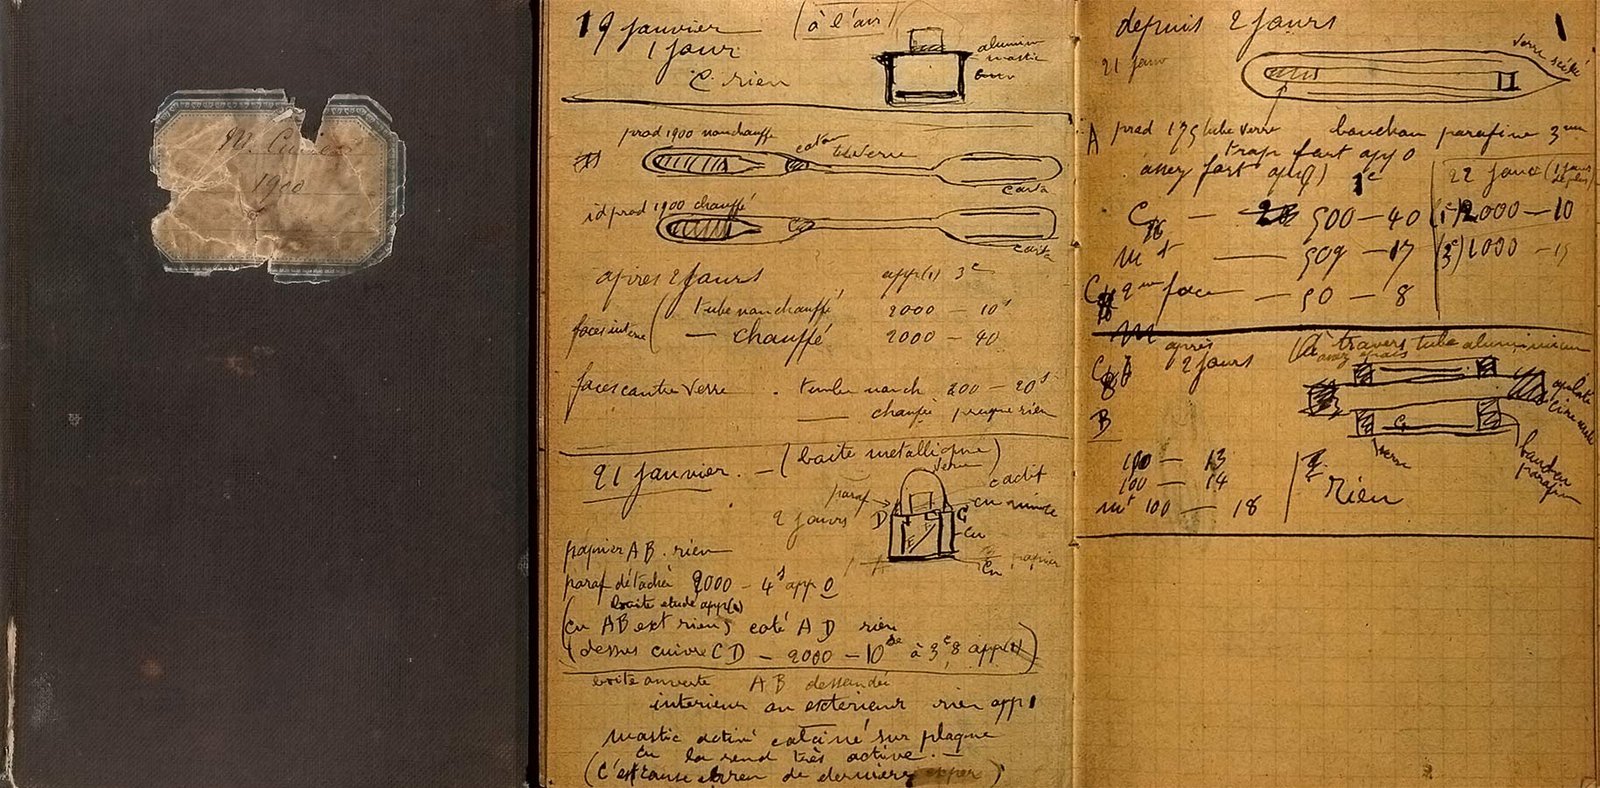 M. Curie
1900
19 janvier (à l'air)
1 jour
C rien
aluminium
mastic
prod 1900 non chauffé
coton tube verre
id prod 1900 chauffé
après 2 jours app(1) 3c
faces interne ( tube non chauffé 2000 — 10s
— chauffé 2000 — 40
faces contre verre . tube non ch 200 — 20s
— chauffé presque rien
21 janvier. — (boite metallique)
verre
paraf
c actif
cu mince
2 jours
D C
cu
E F
papier AB. rien
A B papier
Cu
paraf détaché 2000 — 4s app 0
boite etude app(1)
(cu AB ext rien) coté AD rien
(dessus cuivre CD — 2000 — 10 de à 3c8 app(1))
boite ouverte AB dessoudée
interieur ou exterieur rien app 1
mastic activé calciné sur plaque
cu la rend très active. —
(c'est cause erreur de dernière exper)
depuis 2 jours 1
21 janv
verre scellé
A prod 175 tube verre bouchon parafine 3mm
trop fort app 0
assez fort app 1c
22 janv (1 jour de plus)
C — 500 — 40 (1c) 2000 — 10
mt — 509 — 17 (3c) 1000 — 15
C 2me face — 50 — 8
M
après
C A 2 jours (à travers tube aluminium
assez épais
B
C
verre
bouchon
parafine
100 — 13
100 — 14
mt 100 — 18
rien